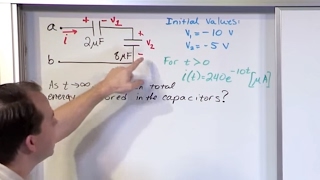 a
+ - V₁ -
i
2μF
+
V₂
-
8μF
b
Initial Values:
V₁ = -10 V
V₂ = -5 V
For t>0
i(t)=240e^-10t [μA]
As t→∞ total
energy stored in the capacitors?